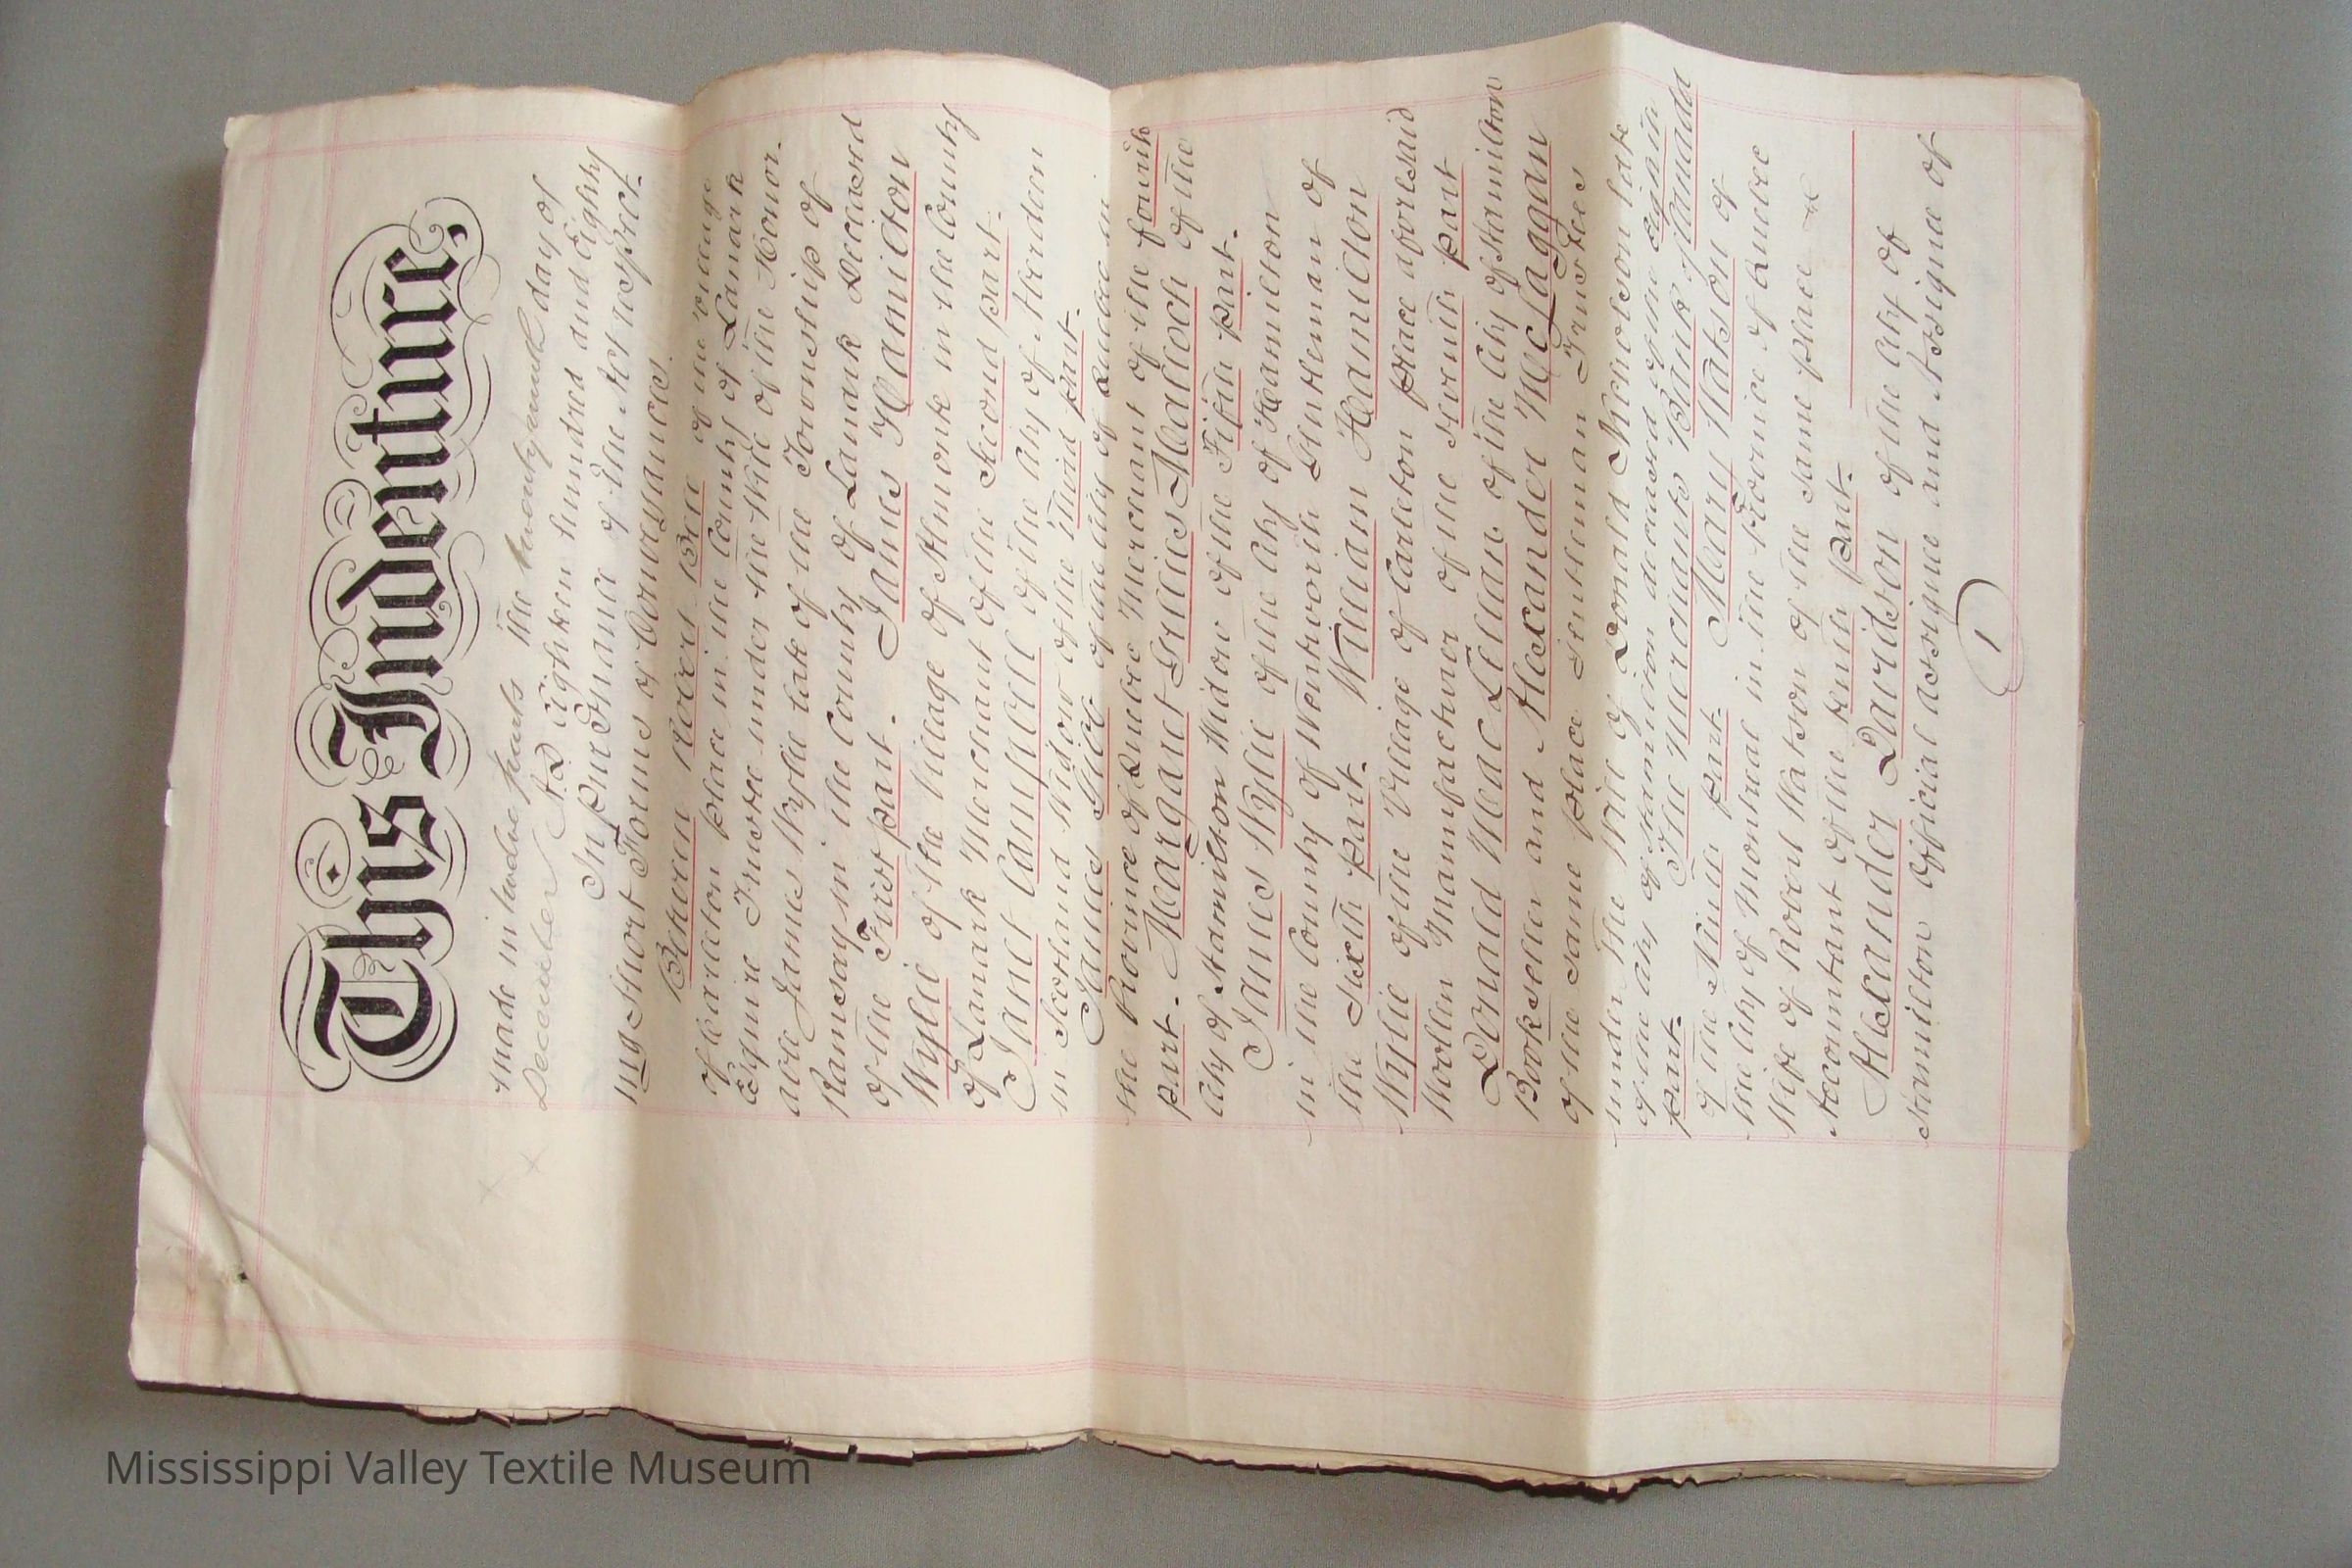 This Indenture,
made in twelve parts the twenty-ninth day of
December A.D. Eighteen hundred and Eighty
In pursuance of the Act respect-
ing Short Forms of Conveyances.
Between Robert Bell of the Village
of Carleton place in the County of Lanark
Esquire Trustee under the Will of the Honor-
able James Wylie late of the Township of
Ramsay in the County of Lanark Deceased
of the First part. James Hamilton
Wylie of the Village of Almonte in the County
of Lanark Merchant of the Second part.
Janet Campbell of the City of Aberdeen
in Scotland Widow of the third part.
James of the City of Quebec in
the Province of Quebec Merchant of the fourth
part. Margaret Gillies Malloch of the
City of Hamilton Widow of the Fifth part.
James Wylie of the City of Hamilton
in the County of Wentworth Gentleman of
the Sixth part. William Hamilton
Wylie of the Village of Carleton place aforesaid
Woollen Manufacturer of the seventh part
Donald MacLellan of the City of Hamilton
Bookseller and Alexander McLagan
of the same place Gentleman Trustees
under the Will of Donald Nicholson late
of the City of Hamilton deceased of the Eighth
part. The Merchants Bank of Canada
of the Ninth part. Mary Watson of
the City of Montreal in the Province of Quebec
Wife of Robert Watson of the same place
Accountant of the tenth part.
Alexander Davidson of the City of
Hamilton Official assignee and Assignee of
1
Mississippi Valley Textile Museum